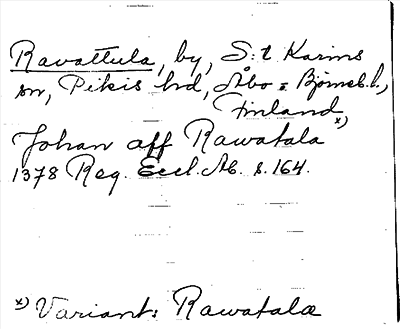 Ravattula, by, S:t Karins
sn, Pikis hd, Åbo o. Björneb. l.,
Finland
Johan aff Rawatala x)
1378 Reg. Eccl. Ab. s. 164.
x) Variant: Rawatala